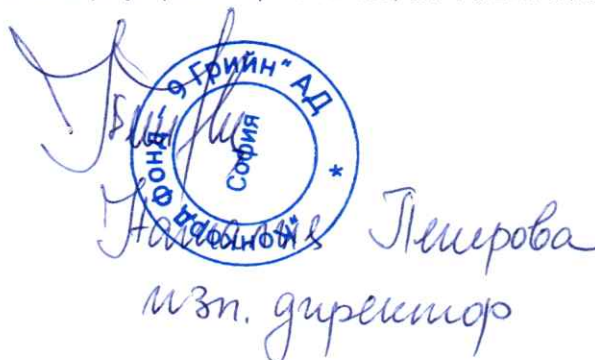 „Конкорд Фонд - 9 Грийн“ АД
*
София
Наталия Петрова
изп. директор